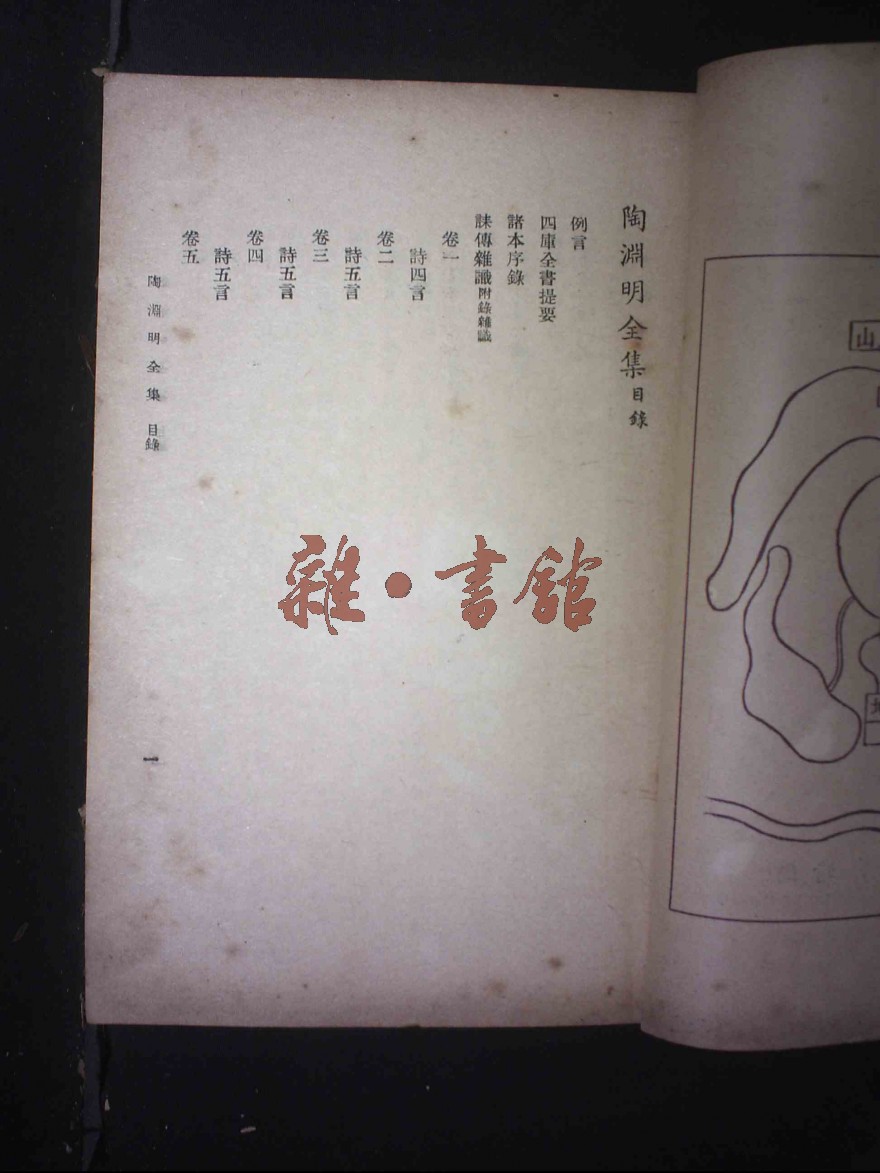 陶淵明全集目錄
例言
四庫全書提要
諸本序錄
誄傳雜識附錄雜識
卷一
詩四言
卷二
詩五言
卷三
詩五言
卷四
詩五言
卷五
陶淵明全集 目錄
一
雜·書館
山